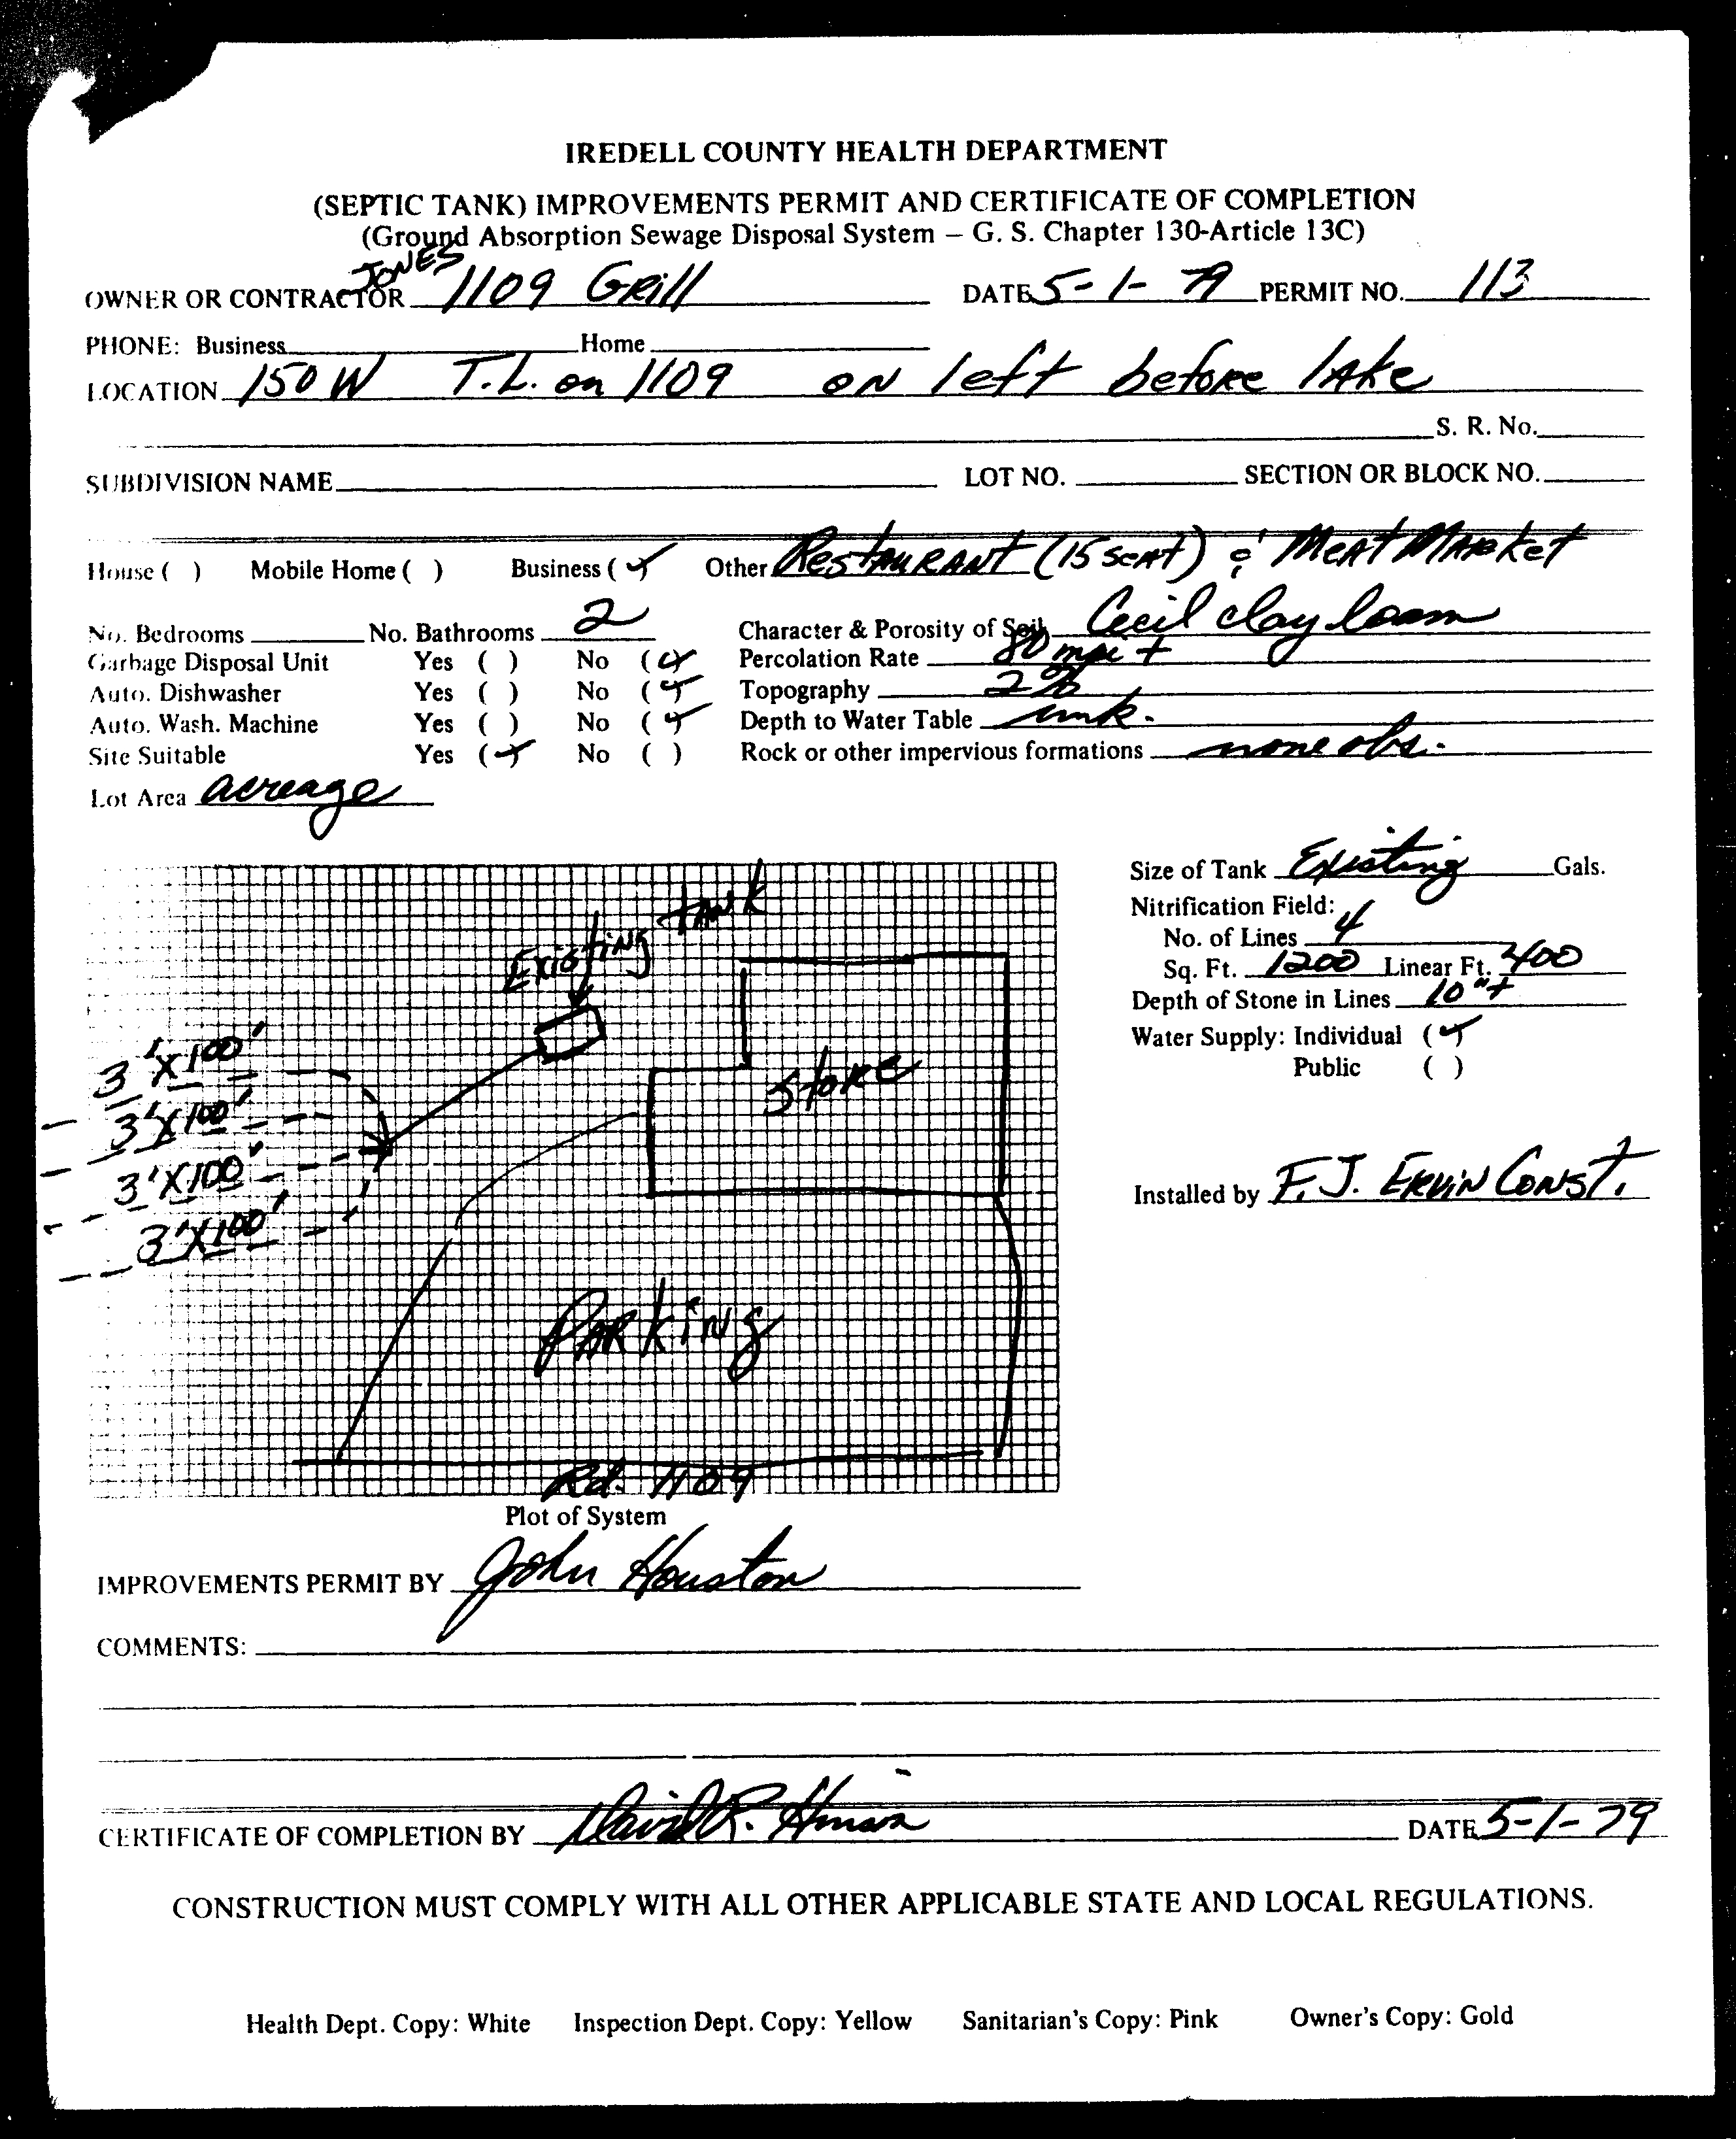 IREDELL COUNTY HEALTH DEPARTMENT
(SEPTIC TANK) IMPROVEMENTS PERMIT AND CERTIFICATE OF COMPLETION
(Ground Absorption Sewage Disposal System – G. S. Chapter 130-Article 13C)
JONES
OWNER OR CONTRACTOR 1109 Grill DATE 5-1-79 PERMIT NO. 113
PHONE: Business Home
LOCATION 150 W T.L. on 1109 on left before lake
S. R. No.
SUBDIVISION NAME LOT NO. SECTION OR BLOCK NO.
House ( ) Mobile Home ( ) Business (✓) Other Restaurant (15 seat) & Meat Market
No. Bedrooms No. Bathrooms 2 Character & Porosity of Soil Cecil clay loam
Garbage Disposal Unit Yes ( ) No (✓) Percolation Rate 80 mpi +
Auto. Dishwasher Yes ( ) No (✓) Topography 2%
Auto. Wash. Machine Yes ( ) No (✓) Depth to Water Table unk.
Site Suitable Yes (✓) No ( ) Rock or other impervious formations none obs.
Lot Area acreage
Size of Tank Existing Gals.
Nitrification Field:
No. of Lines 4
Sq. Ft. 1200 Linear Ft. 400
Depth of Stone in Lines 10"+
Water Supply: Individual (✓)
Public ( )
Installed by F. J. Ervin Const.
Existing Tank
3'X100'
3'X100'
3'X100'
3'X100'
Store
Parking
Rd. 1109
Plot of System
IMPROVEMENTS PERMIT BY John Houston
COMMENTS:
CERTIFICATE OF COMPLETION BY David R. DATE 5-1-79
CONSTRUCTION MUST COMPLY WITH ALL OTHER APPLICABLE STATE AND LOCAL REGULATIONS.
Health Dept. Copy: White Inspection Dept. Copy: Yellow Sanitarian's Copy: Pink Owner's Copy: Gold